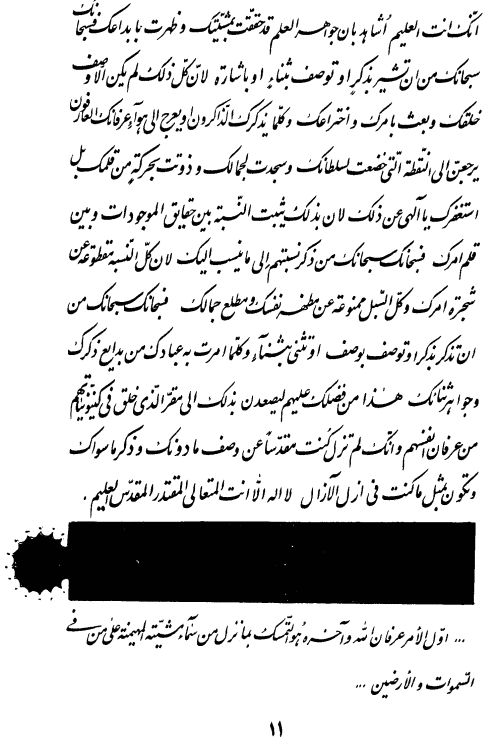 انّک انت العلیم أشاهد بان جواهر العلم قد حقّقت بمشیّتک و ظهرت بابداعک فسبحانک
سبحانک من ان تشیر بذکر او توصف بثناء او باشارة لانّ کلّ ذلک لم یکن الا وصف
خلقک و بعث بامرک و اختراعک و کلّما یذکرک الذّاکرون او یعرج الی هوآء عرفانک العارفون
یرجعنّ الی النّقطة الّتی خضعت لسلطانک و سجدت لجمالک و ذوّتت بحرکة من قلمک بل
استغفرک یا الهی عن ذلک لان بذلک یثبت النّسبة بین حقایق الموجودات و بین
قلم امرک فسبحانک سبحانک من ذکر نسبتهم الی ما ینسب الیک لان کلّ النّسبة مقطوعة عن
شجرة امرک و کلّ السّبل ممنوعة عن مظهر نفسک و مطلع جمالک فسبحانک سبحانک من
ان تذکر بذکر او توصف بوصف او تثنی بثنآء و کلّما امرت به عبادک من بدایع ذکرک
و جواهر ثنائک هذا من فضلک علیهم لیصعدن بذلک الی مقرّ الّذی خلق فی کینونیّاتهم
من عرفان انفسهم و انّک لم تزل کنت مقدّساً عن وصف ما دونک و ذکر ما سواک
و تکون بمثل ما کنت فی ازل الآزال لا اله الّا انت المتعالی المقتدر المقدّس العلیم .
... اوّل الأمر عرفان الله و آخره هو التّمسّک بما نزل من سمآء مشیّته المهیمنة علی من فی
السّموات و الأرضین ...
۱۱